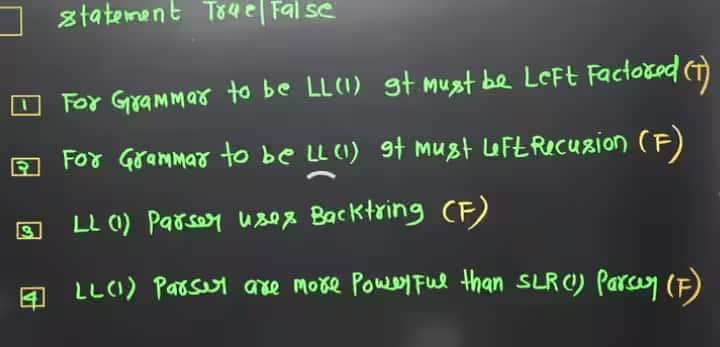 Statement True|False
1 For Grammar to be LL(1) It must be Left Factored (T)
2 For Grammar to be LL(1) It must Left Recusion (F)
3 LL(1) Parser uses Backtring (F)
4 LL(1) Parser are more Powerful than SLR(1) Parser (F)